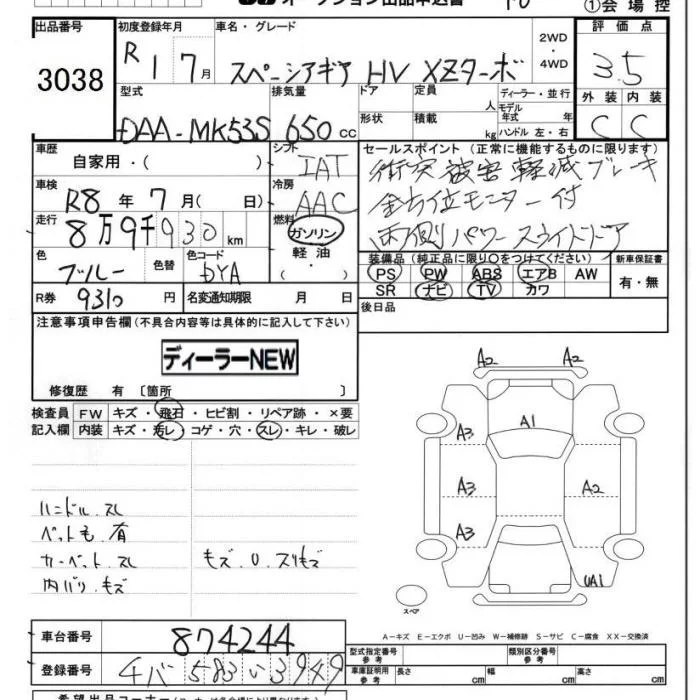 オークション出品申込書
①会場控
出品番号 3038
初度登録年月 R 1 7月
車名・グレード スペーシアギア HV XZターボ
2WD・4WD
評価点 3.5
外装 C 内装 C
型式 DAA-MK53S
排気量 650 cc
ドア 形状
定員 人
積載 kg
ディーラー・並行
モデル年式 年式
ハンドル 左・右
車歴 自家用・( )
シフト IAT
セールスポイント (正常に機能するものに限ります)
衝突被害軽減ブレーキ
全方位モニター付
両側パワースライドドア
車検 R8年 7月( 日)
冷房 AAC
走行 8万9千930 km
燃料 ガソリン・軽油・( )
色 ブルー 色替
色コード DYA
装備品 (純正品に限り○をつけてください)
新車保証書 有・無
PS PW ABS エアB AW
SR ナビ TV カワ
R券 9310円
名変通知期限 月 日
後日品
注意事項申告欄(不具合内容等は具体的に記入して下さい)
ディーラーNEW
修復歴 有 〔箇所 〕
検査員記入欄
FW キズ・飛石・ヒビ割・リペア跡・×要
内装 キズ・汚レ・コゲ・穴・スレ・キレ・破レ
A2 A2
A1
A3
A3 A2
A3
UA1
スペア
ハンドル.スレ
ペット毛.有
カーペット.スレ
内バリ.キズ
キズ.U.スリキズ
A-キズ E-エクボ U-凹み W-補修跡 S-サビ C-腐食 XX-交換済
車台番号 874244
登録番号 チバ 583 い 3949
型式指定番号 参考
類別区分番号 参考
車庫証明用 参考 長さ cm 幅 cm 高さ cm